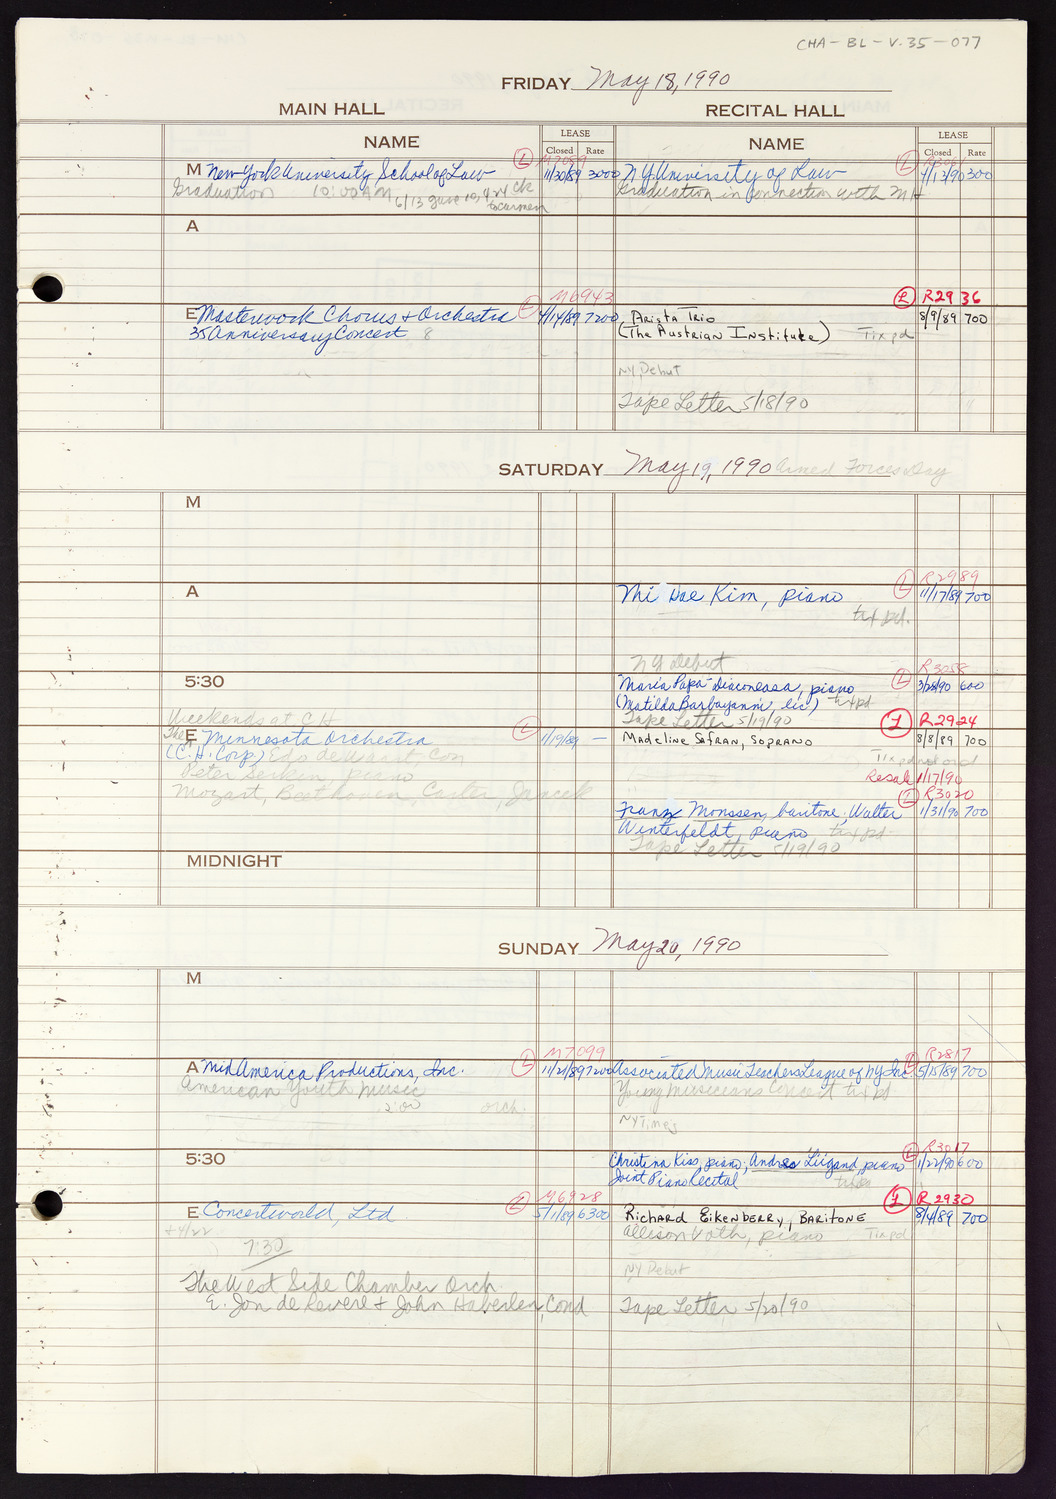 CHA-BL-V.35-077
FRIDAY May 18, 1990
MAIN HALL RECITAL HALL
NAME LEASE Closed Rate NAME LEASE Closed Rate
L M7089 L R3061
M New York University School of Law 11/30/89 3000 N.Y. University of Law 4/13/90 300
Graduation 10:00 AM 6/13 gave Graduation in connection with MH
to Carmen
A
L M6943 L R2936
E Masterwork Chorus + Orchestra 4/14/89 7200 Arista Trio 8/9/89 700
35 Anniversary Concert 8 (The Austrian Institute) Tix pd
NY Debut
Tape Letter 5/18/90
SATURDAY May 19, 1990 Armed Forces Day
M
L R2989
A Mi Hae Kim, piano 11/17/89 700
tix pd.
NY Debut
L R3058
5:30 Maria Papa-Diaconeasa, piano 3/28/90 600
(Matilda Barbayanni, lic) tix pd
Weekends at CH Tape Letter 5/19/90
L R2924
The E Minnesota Orchestra L 1/19/89 — Madeline Safran, Soprano 8/8/89 700
(C.H. Corp) Edo de Waart, Con Tix pd not ord
Peter Serkin, piano Resale 1/17/90
Mozart, Beethoven, Carter, Jancek L R3020
Franz Monssen, baritone, Walter 1/31/90 700
Winterfeldt, piano tix pd
Tape Letter 5/19/90
MIDNIGHT
SUNDAY May 20, 1990
M
L M7099 L R2817
A MidAmerica Productions, Inc. 11/21/89 7200 Associated Music Teachers League of NY Inc 5/15/89 700
American Youth Music Young Musicians Concert tix pd
2:00 orch.
NY Times
L R3017
5:30 Christina Kiss, piano; Andres Liigand, piano 1/22/90 600
Joint Piano Recital
L M6928 L R2930
E Concertworld, Ltd 5/1/89 6300 Richard Eikenberry, Baritone 8/4/89 700
Allison Voth, piano Tix pd
7:30
NY Debut
The West Side Chamber Orch.
E. Jon de Revere + John Haberlen, Cond Tape Letter 5/20/90